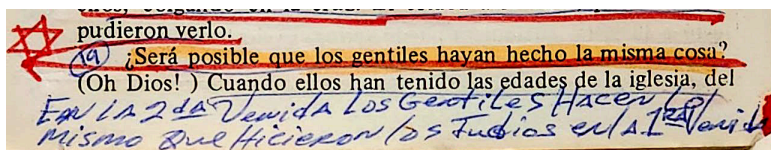 pudieron verlo.
19 ¿Será posible que los gentiles hayan hecho la misma cosa?
(Oh Dios! ) Cuando ellos han tenido las edades de la iglesia, del
EN LA 2da Venida Los Gentiles Hacen Lo
Mismo Que Hicieron los Judios en LA 1ra Venida